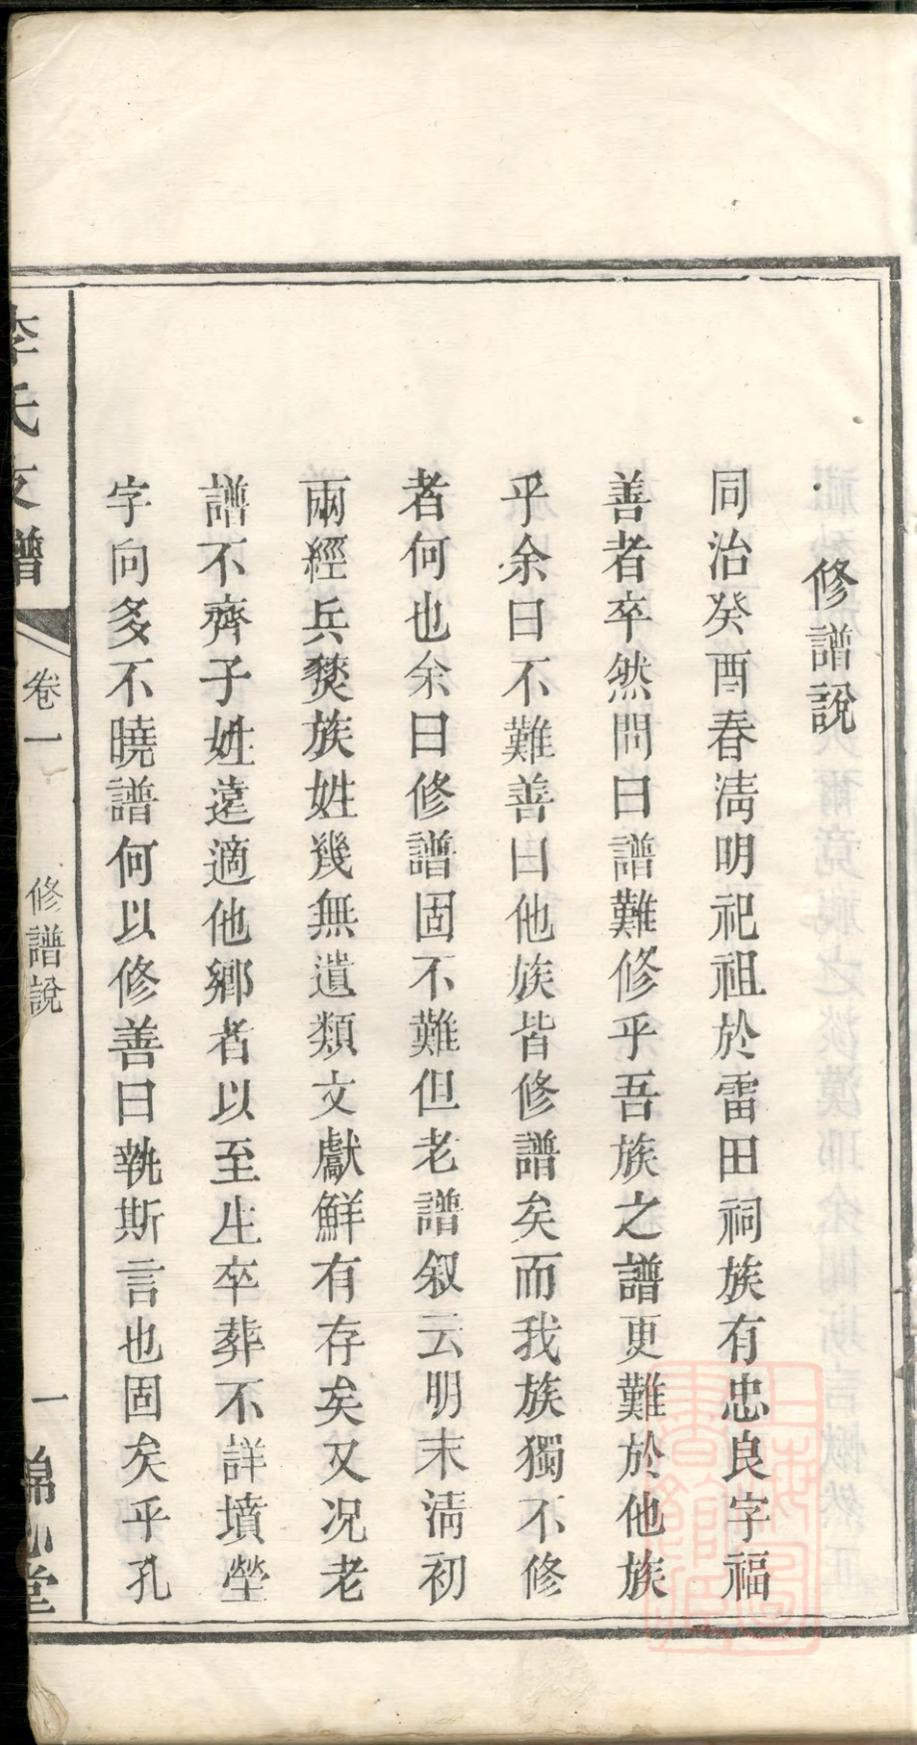 修譜說
同治癸酉春淸明祀祖於雷田祠族有忠良字福
善者卒然問曰譜難修乎吾族之譜更難於他族
乎余曰不難善曰他族皆修譜矣而我族獨不修
者何也余曰修譜固不難但老譜叙云明末淸初
兩經兵燹族姓幾無遺類文獻鮮有存矣又况老
譜不齊子姓遠適他鄉者以至生卒葬不詳墳塋
字向多不曉譜何以修善曰執斯言也固矣乎孔
李氏支譜
卷一
修譜說
一
堂
上海圖書館藏